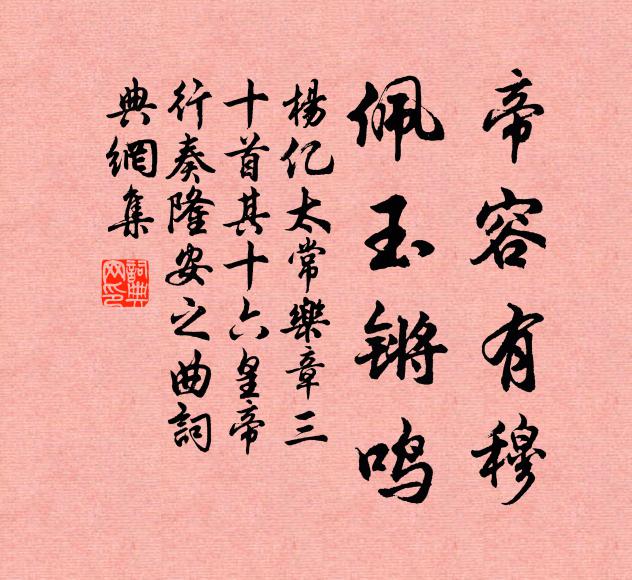 帝容有穆
佩玉锵鸣
楊亿太常樂章三
十首其十六皇帝
行奏隆安之曲詞
典網集
詞典網印